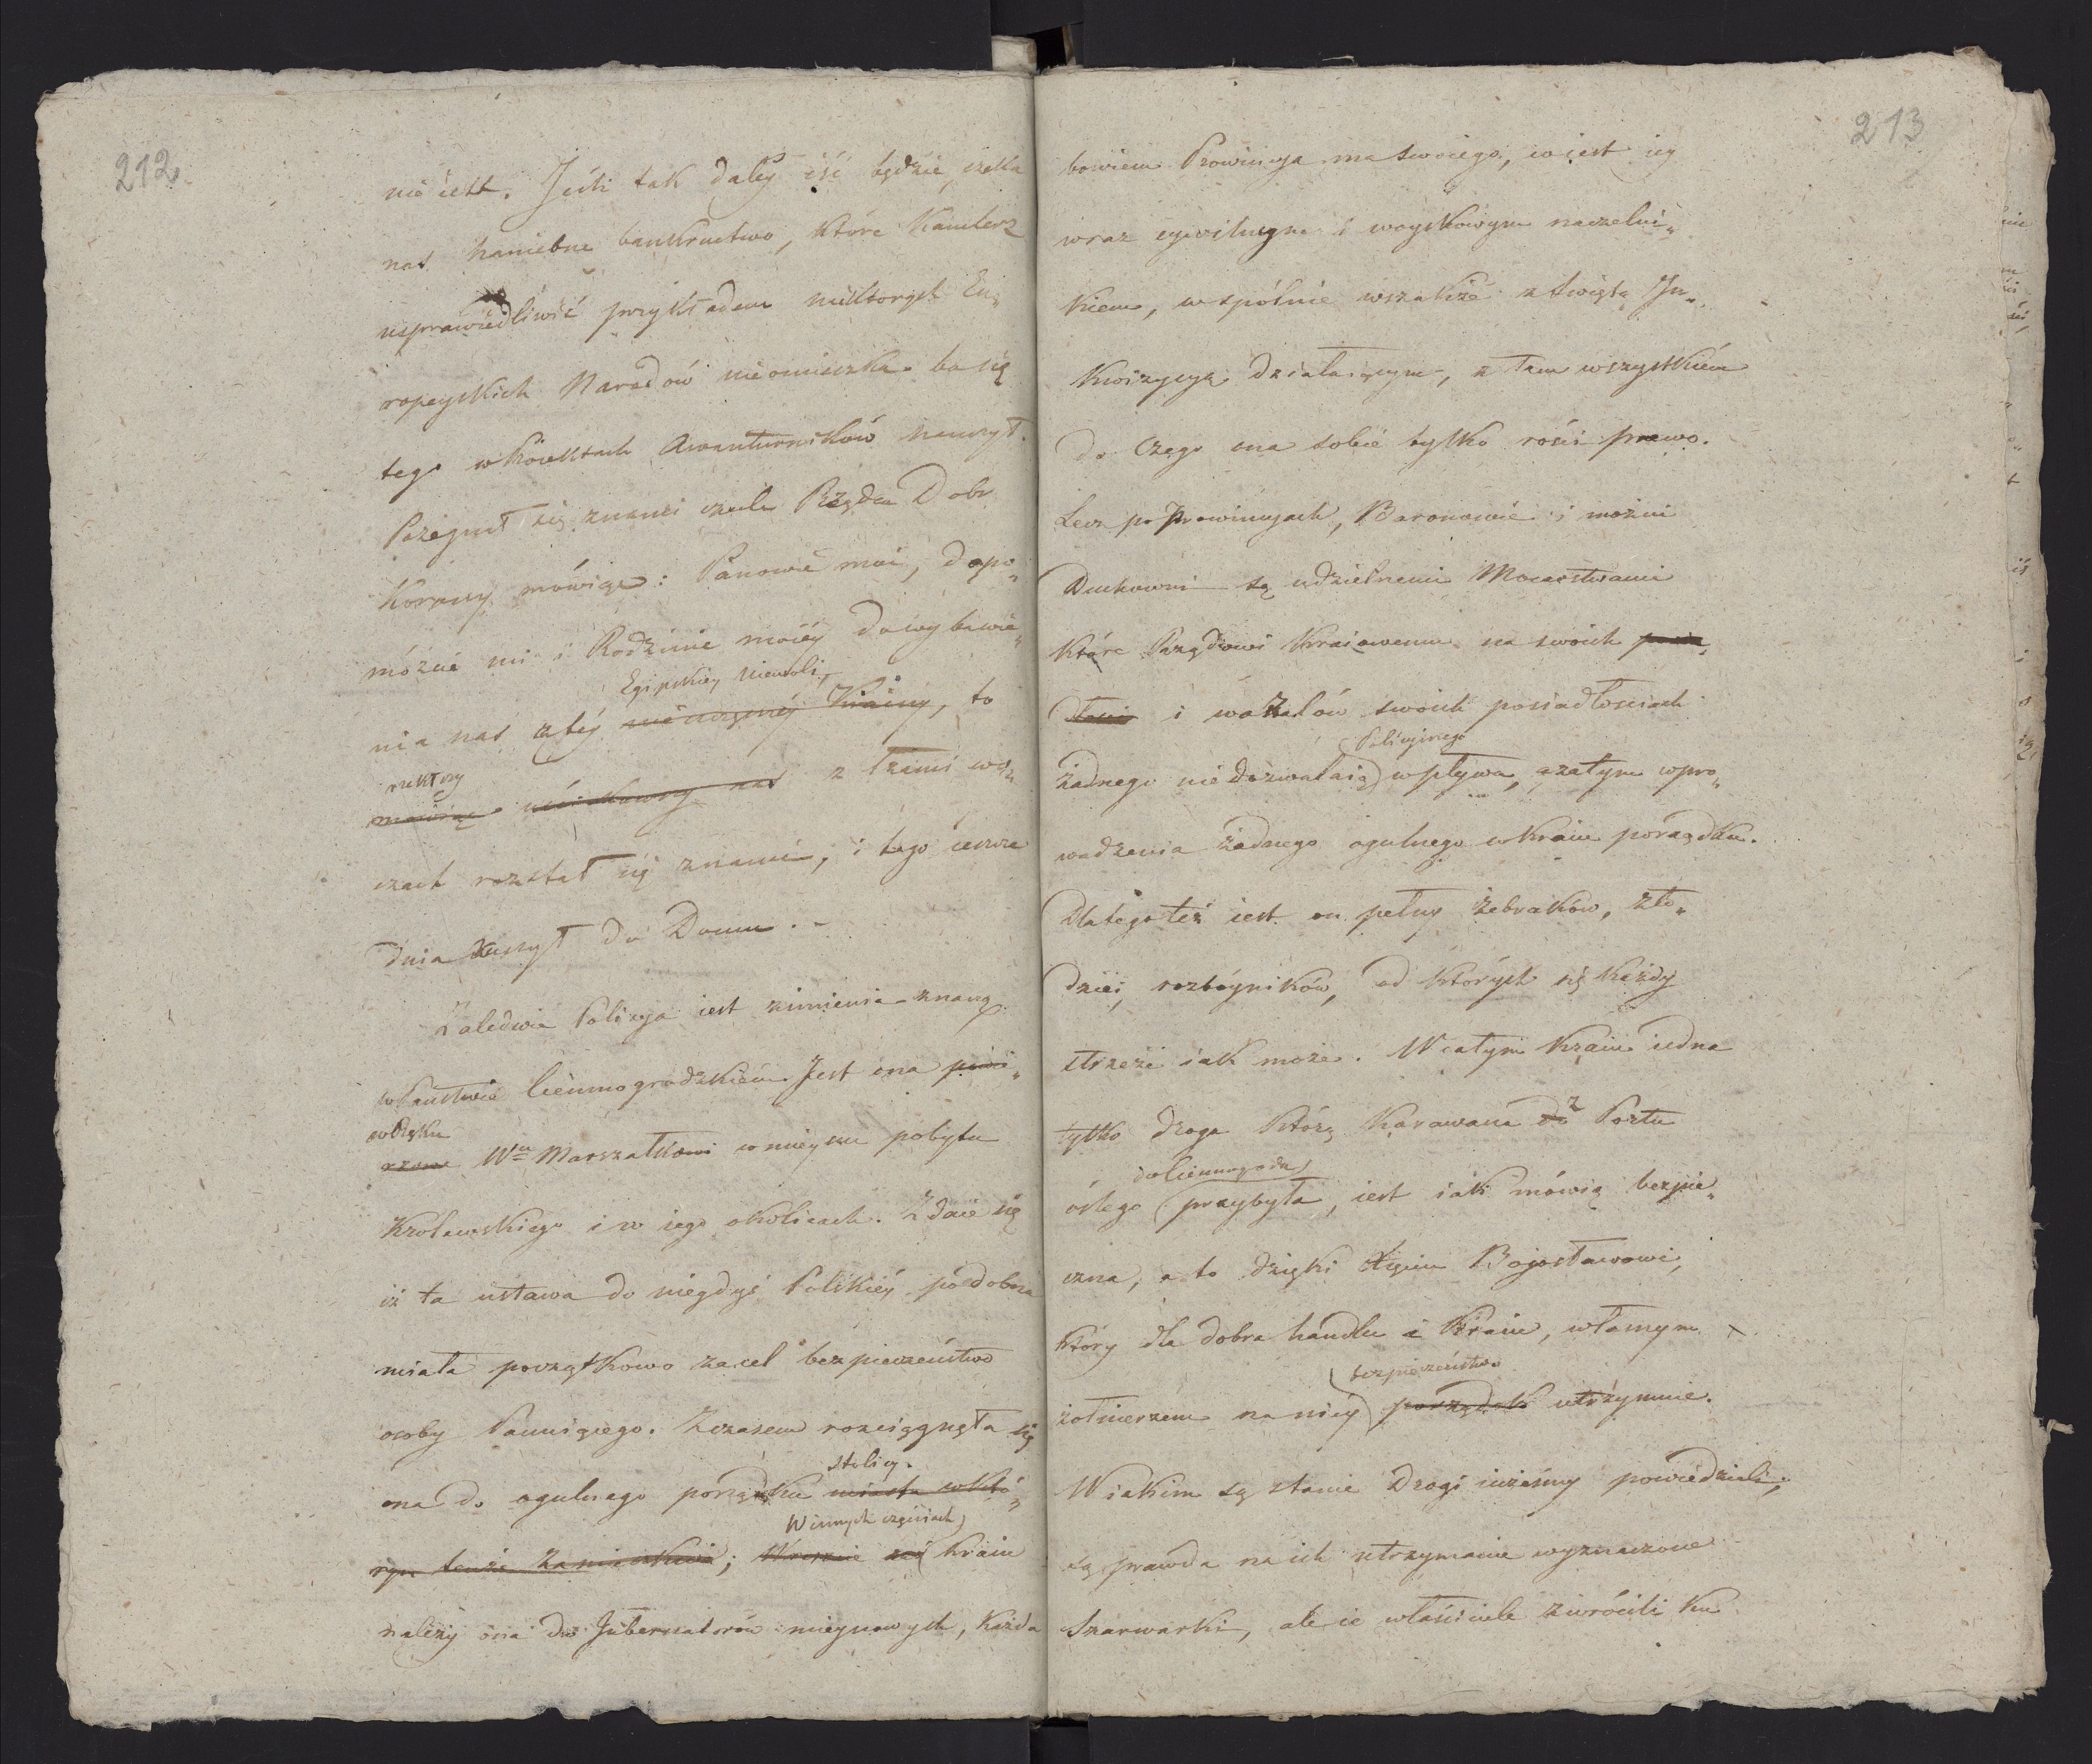 212
nie iest. Jeśli tak daley iść będzie, czeka
nas haniebne bankructwo, które Kanclerz
usprawiedliwić przykładem niektorych Eu„
ropeyskich Narodów nieomieszka bo się
tego w Awanturników nauczył.
Pożegnał się znami czule Rządca Dobr
Korony mówiąc: Panowie moi, dopo„
móżcie mi i Rodzinie moiéy do wybawie„
Egipskiey niewoli,
nia nas z téy Krainy, to
rzekłszy
mówiąc uściskawszy nas z łzami w o„
czach rozstał się znami, i tego ieszcze
dnia ruszył do Domu. –
Zaledwie Policya iest zimienia znaną
w Państwie Ciemnogrodzkiém. Jest ona
w Ręku
Wu Marszałkowi w mieyscu pobytu
Krolewskiego i w iego okolicach. Zdaie się
iż ta ustawa do niegdyś Polskiéy podobna
miała początkowo za cel bezpieczeństwo
osoby Panuiącego. Zczasem rozciągnęła się
stolicy.
ona do ogulnego porządku miasta w któ„
W innych częściach
rym tenże zamieszkiwa; Wreszcie zaś Kraiu
należy ona do Gubernatorów mieyscowych, każda
213
bowiem Prowincya ma swoiego, co iest iey
wraz cywilnym i woyskowym naczelni„
kiem, wspólnie wszakże z świętą In„
kwizycyą działaiącym, z tem wszystkiém
do czego ona sobie tylko rości prawo.
Lecz po Prowincyach, Baronowie i możni
Duchowni są udzielnemi Mocarstwami
które Rządowi Kraiowemu na swoich
i wazalów swoich posiadłosciach
Policyinego
żadnego niedozwalaią wpływu, a zatym wpro„
wadzenia żadnego ogulnego w kraiu porządku.
Dlatego też iest on pełny żebraków, zło„
dziei, rozbóyników, od których się każdy
strzeże iak może. W całym Kraiu iedna
tylko droga którą Karawana do z Portu
do Ciemnogrodu
oślego przybyła, iest iak mówią bezpie„
czna, a to dzięki Xięciu Bogosławowi,
który dla dobra handlu i Kraiu, własnym
bezpieczeństwo
żołnierzem na niey porządek utrzymuie.
W iakim są stanie Drogi iużeśmy powiedzieli;
są prawda na ich utrzymanie wyznaczone
Szarwarki, ale ie właściciele zwrócili ku